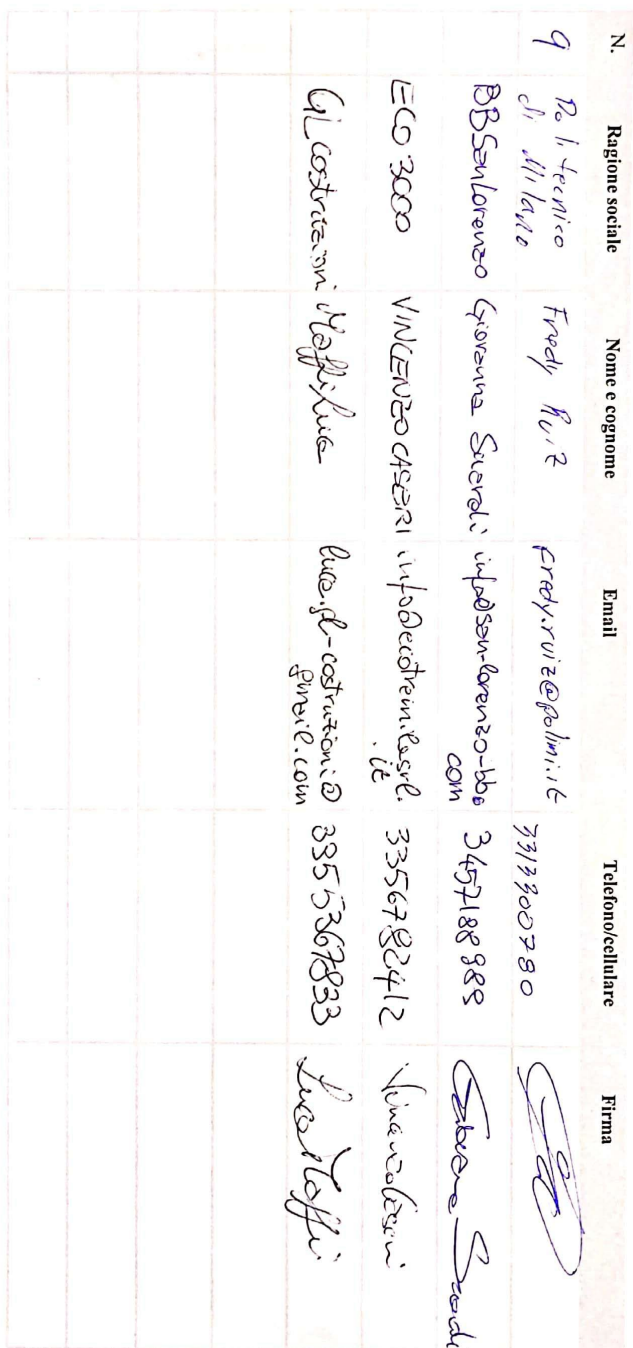 N. Ragione sociale Nome e cognome Email Telefono/cellulare Firma
9 Politecnico di Milano Fredy Ruiz fredy.ruiz@polimi.it 3313300780
BB San Lorenzo Giovanna info@san-lorenzo-bb.com 3457188989
ECO 3000 VINCENZO CASERI info@ecotremilasrl.it 3356782412
GL costruzioni Maffi Luca luca.gl-costruzioni@gmail.com 3355367833 Luca Maffi